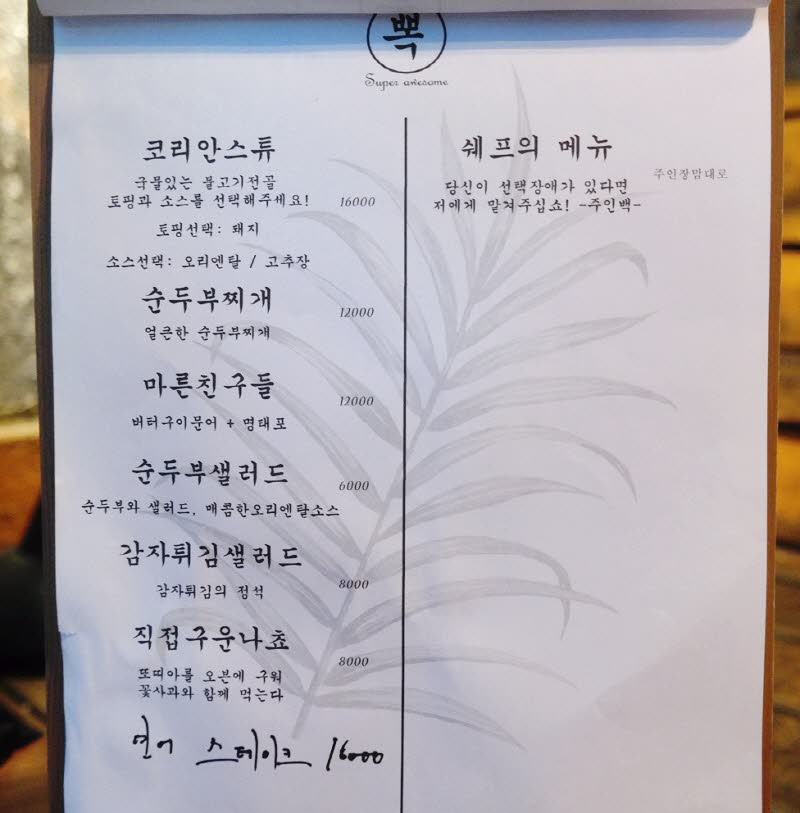 뽁
Super awesome
코리안스튜
국물있는 불고기전골
토핑과 소스를 선택해주세요! 16000
토핑선택: 돼지
소스선택: 오리엔탈 / 고추장
순두부찌개 12000
얼큰한 순두부찌개
마른친구들 12000
버터구이문어 + 명태포
순두부샐러드 6000
순두부와 샐러드, 매콤한오리엔탈소스
감자튀김샐러드 8000
감자튀김의 정석
직접구운나쵸 8000
또띠아를 오븐에 구워
꽃사과와 함께 먹는다
연어 스테이크 16000
쉐프의 메뉴
주인장맘대로
당신이 선택장애가 있다면
저에게 맡겨주십쇼! -주인백-